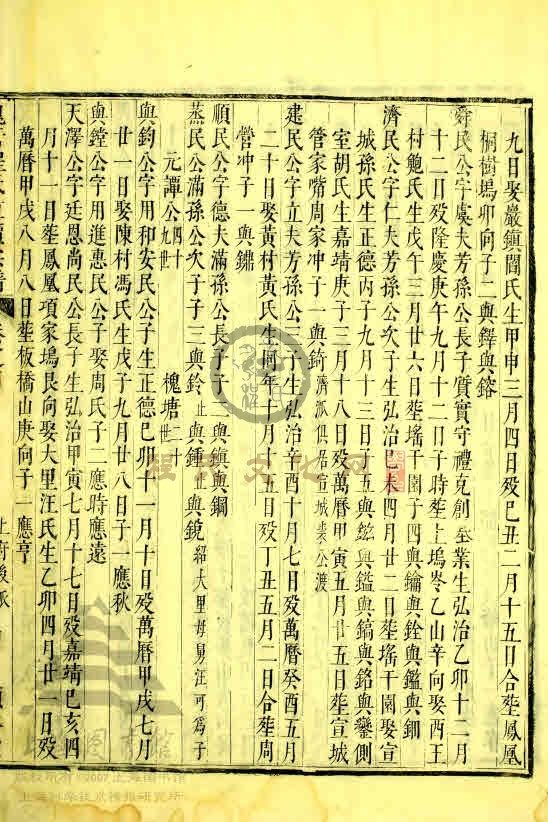 九日娶巖鎮閻氏生甲申三月四日殁己丑二月十五日合塟鳳凰
桐樹塢卯向子二與鐸與鎔
舜民公字虞夫芳孫公長子質實守禮克創基業生弘治乙卯十二月
十二日殁隆慶庚午九月十二日子時塟上塢岺乙山辛向娶西王
村鮑氏生戊午三月廿六日塟塔干園子四與鑰與銓與鑑與鈿
濟民公字仁夫芳孫公次子生弘治己未四月廿二日塟塔干園娶宣
城孫氏生正德丙子九月十三日子五與 與鑑與鎬與鉻與鑾側
室胡氏生嘉靖庚子三月十八日殁萬曆甲寅五月廿五日塟宣城
管家嘴周家冲子一與錡濟派俱居宣城裘公渡
建民公字立夫芳孫公三子生弘治辛酉十月七日殁萬曆癸酉五月
二十日娶黃村黃氏生 年十月十五日殁丁丑五月二日合塟周
管冲子一與鏽
順民公字德夫滿孫公長子子二與鎮與鋼
蒸民公滿孫公次子子三與鈴止與鍾與鏡紹大里母舅汪可為子
元譚公四十九世 槐塘二十世
與鈞公字用和安民公子生正德己卯十一月十日殁萬曆甲戌七月
廿一日娶陳村馮氏生戊子九月廿八日子一應秋
與鏜公字用進惠民公子娶周氏子二應時應遠
天澤公字廷恩尚民公長子生弘治甲寅七月十七日殁嘉靖己亥四
月十一日塟鳳凰項家塢艮向娶大里汪氏生乙卯四月廿一日殁
萬曆甲戌八月八日塟板橋山庚向子一應亨